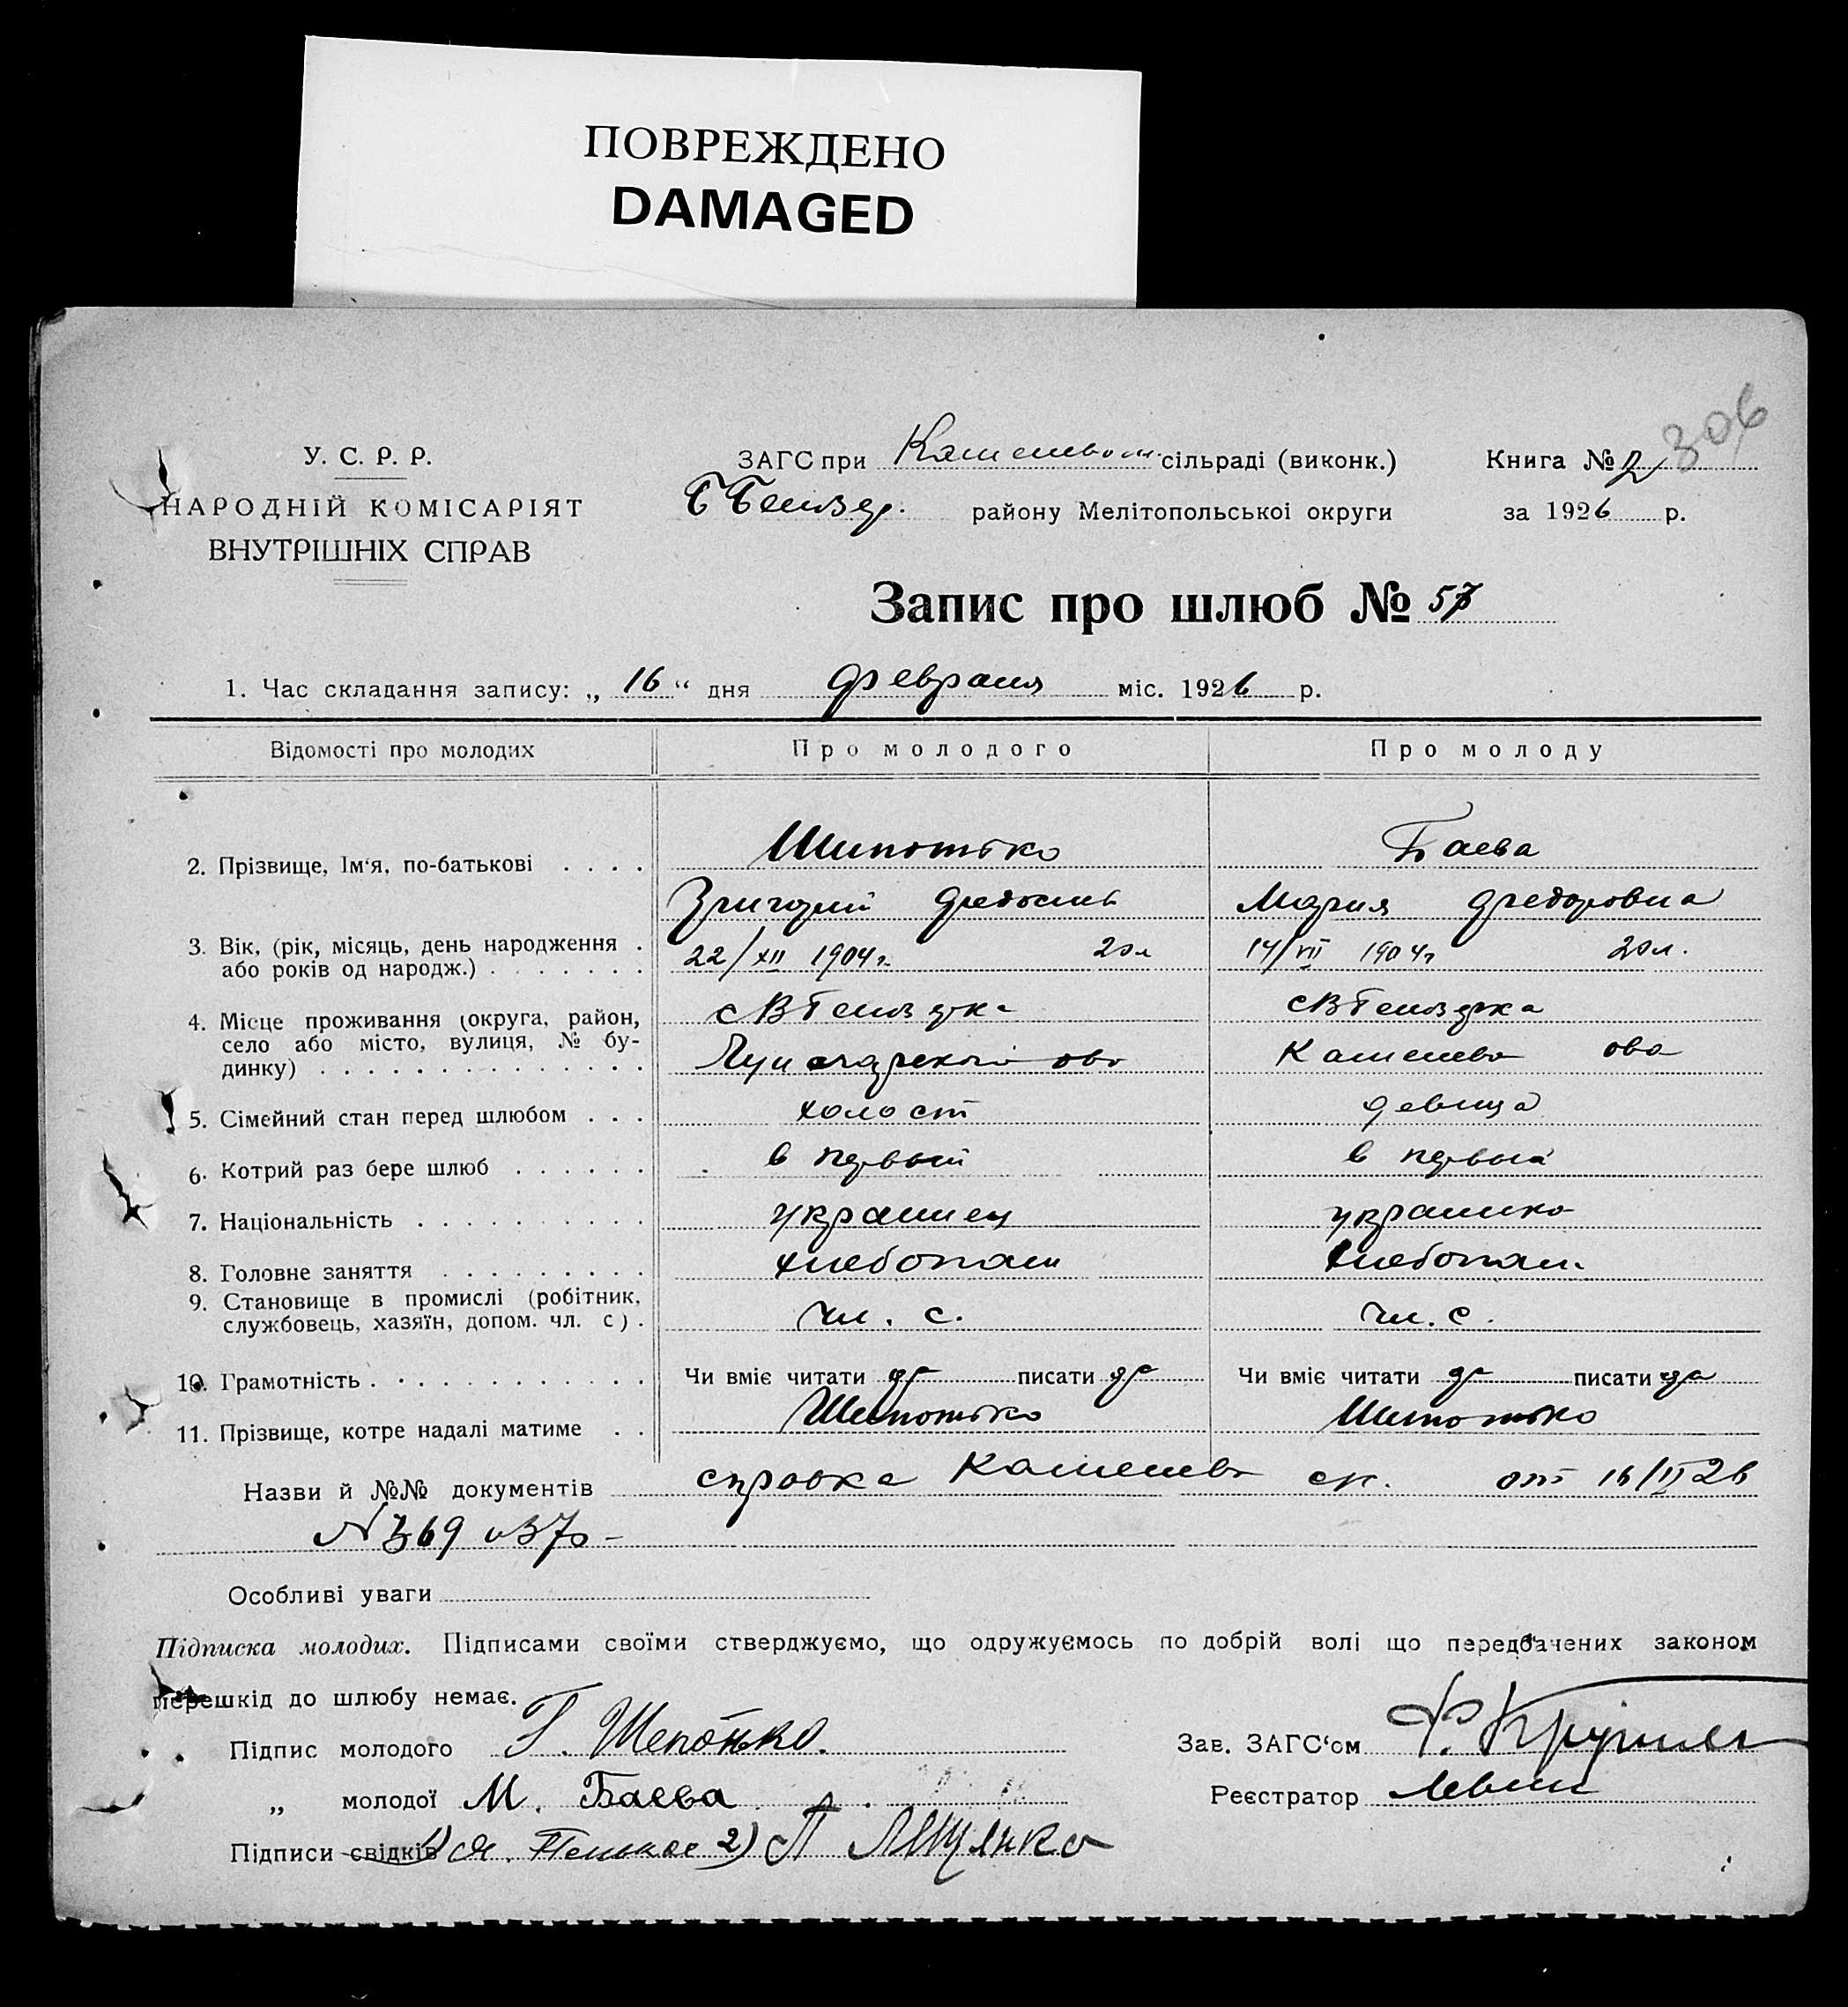 ПОВРЕЖДЕНО
DAMAGED
306
У. С. Р. Р.
НАРОДНІЙ КОМІСАРІЯТ
ВНУТРІШНІХ СПРАВ
ЗАГС при сільраді (виконк.)
району Мелітопольської округи
Книга № 2
за 1926 р.
Запис про шлюб № 57
1. Час складання запису: „ 16 “ дня февраля міс. 1926 р.
Відомості про молодих Про молодого Про молоду
2. Прізвище, Ім‘я, по-батькові . . . . Шипотько Баева
Григорий Федосиев Мария Федоровна
3. Вік, (рік, місяць, день народження . 22/XII 1904 г. 20 л 14/VII 1904 г 20 л.
або років од народж.) . . . . . . .
4. Місце проживання (округа, район,
село або місто, вулиця, № бу-
динку) . . . . . . . . . . . . . .
5. Сімейний стан перед шлюбом . . . холост девица
6. Котрий раз бере шлюб . . . . . . в первый в первый
7. Національність . . . . . . . . . . украинец украинка
8. Головне заняття . . . . . . . . . хлебопаш хлебопаш.
9. Становище в промислі (робітник,
службовець, хазяїн, допом. чл. с) . чл. с. чл. с.
10. Грамотність . . . . . . . . . . . . Чи вміє читати да писати да Чи вміє читати да писати да
11. Прізвище, котре надалі матиме . . Шипотько Шипотько
Назви й №№ документів справка ск. от 16/II 26
N 369 и 370 –
Особливі уваги
Підписка молодих. Підписами своїми стверджуємо, що одружуємось по добрій волі що передбачених законом
перешкід до шлюбу немає.
Підпис молодого Г. Шепотько.
Зав. ЗАГС‘ом
„ молодої М. Баева
Реєстратор Левин
Підписи свідків 1) 2)